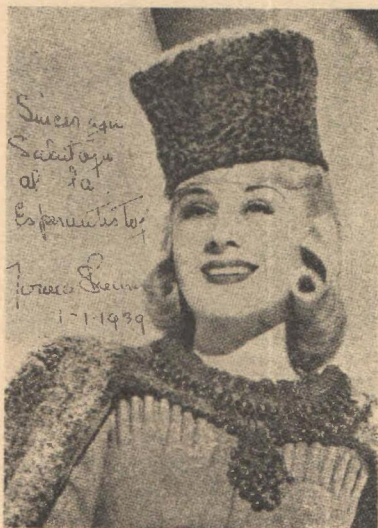 Sincerajn
Salutojn
al la
Esperantistoj
1-1-1939